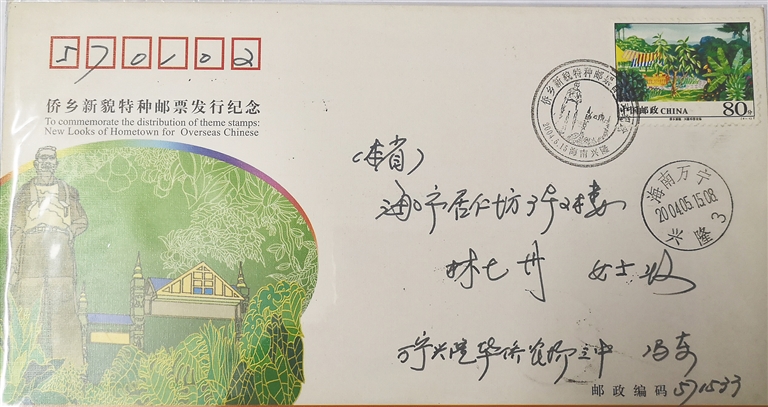 570102
侨乡新貌特种邮票发行纪念
To commemorate the distribution of theme stamps:
New Looks of Hometown for Overseas Chinese
侨乡新貌特种邮票
2004.5.15 海南兴隆
中国邮政 CHINA 80分
海南万宁
2004.05.15.08
兴隆 3
(本省)
海口市居仁坊
林七 女士收
万宁兴隆华侨农场 中
邮政编码 571533